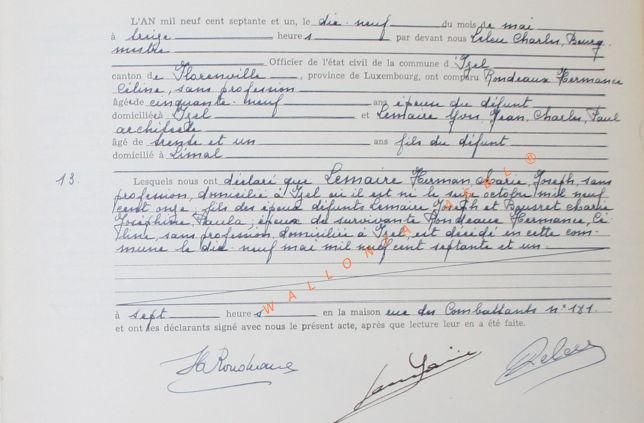 L'AN mil neuf cent septante et un, le dix-neuf du mois de mai
à seize heures par devant nous Lelou Charles, Bourg-
mestre
Officier de l'état civil de la commune d'Izel
canton de Florenville, province de Luxembourg, ont comparu Rondeaux Hermance
Céline, sans profession
âgée de cinquante-neuf ans épouse du défunt
domiciliée à Izel et Lemaire Yvon, Jean, Charles, Paul
architecte
âgé de trente et un ans fils du défunt
domicilié à Limal
13. Lesquels nous ont déclaré que Lemaire Herman, Marie, Joseph, sans
profession, domicilié à Izel où il est né le seize octobre mil neuf
cent onze, fils des époux défunts Lemaire Joseph et Marie
Joséphine, Paula, époux de survivante Rondeaux Hermance, Cé-
line, sans profession, domiciliée à Izel, est décédé en cette com-
mune le dix-neuf mai mil neuf cent septante et un
à sept heures en la maison rue des Combattants n° 181.
et ont les déclarants signé avec nous le présent acte, après que lecture leur en a été faite.
H Rondeaux
WALLONIA ASBL ®